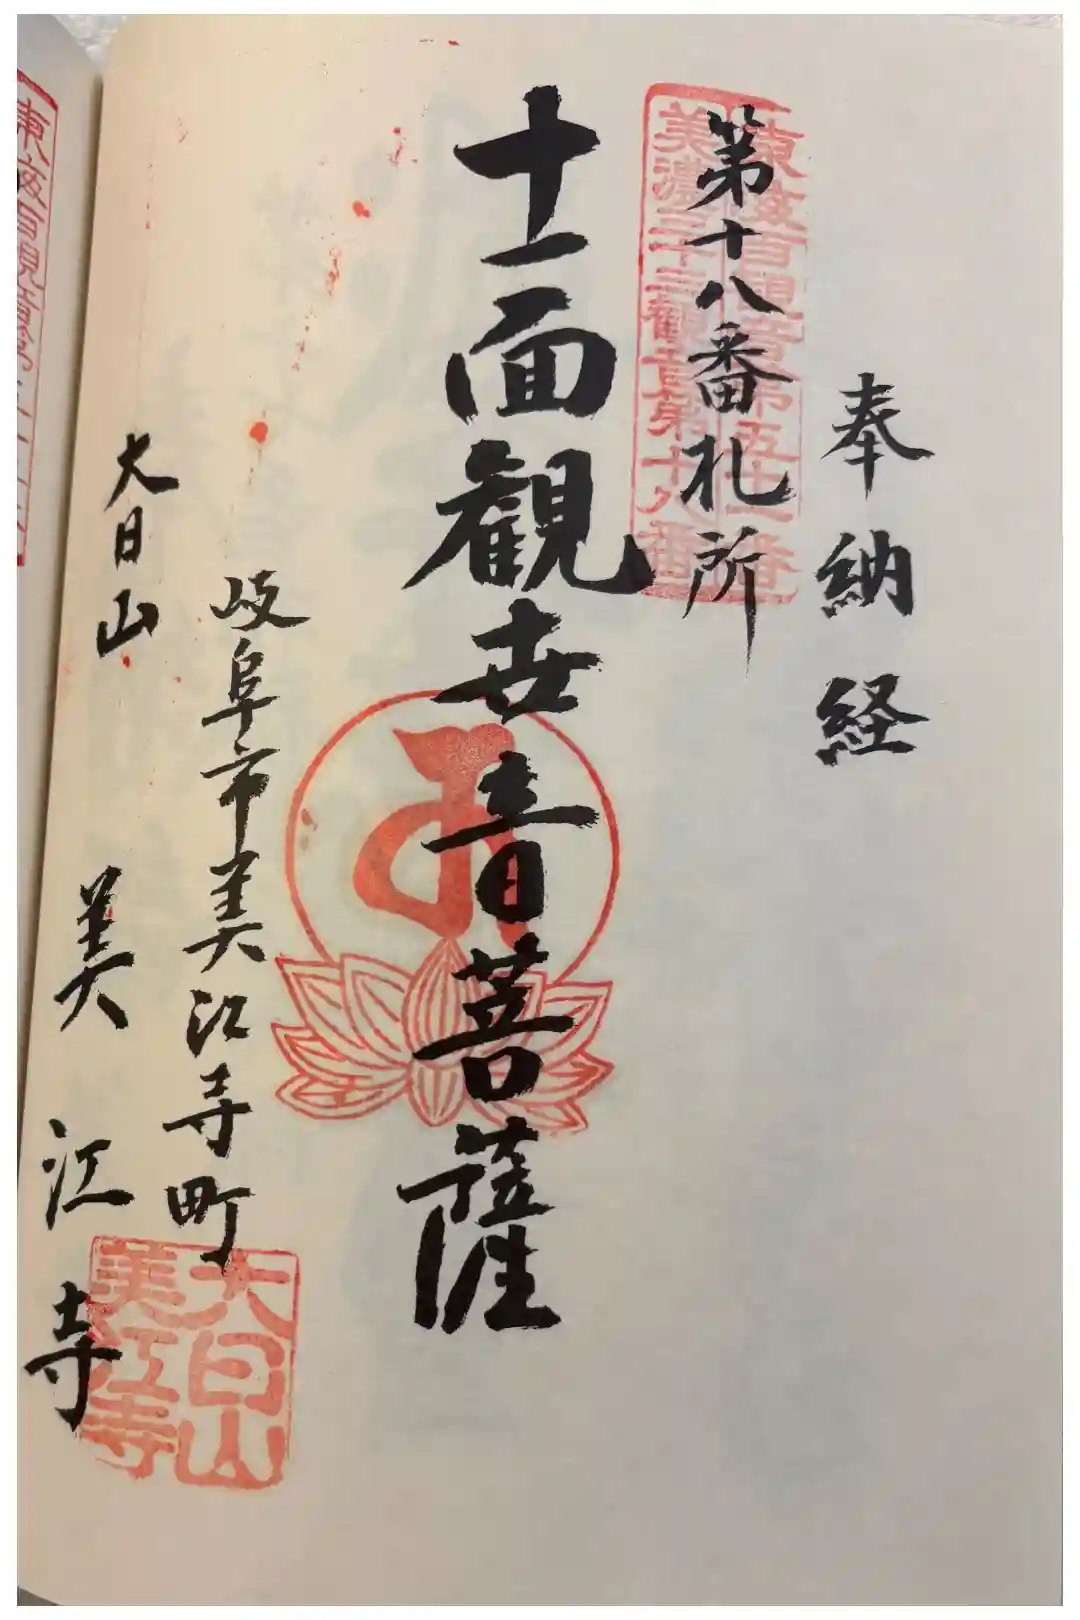 奉納経
東海百観音第五十一番
美濃三十三観音第十八番
第十八番札所
十一面観世音菩薩
岐阜市美江寺町
大日山 美江寺
大日山
美江寺
東海百観音第